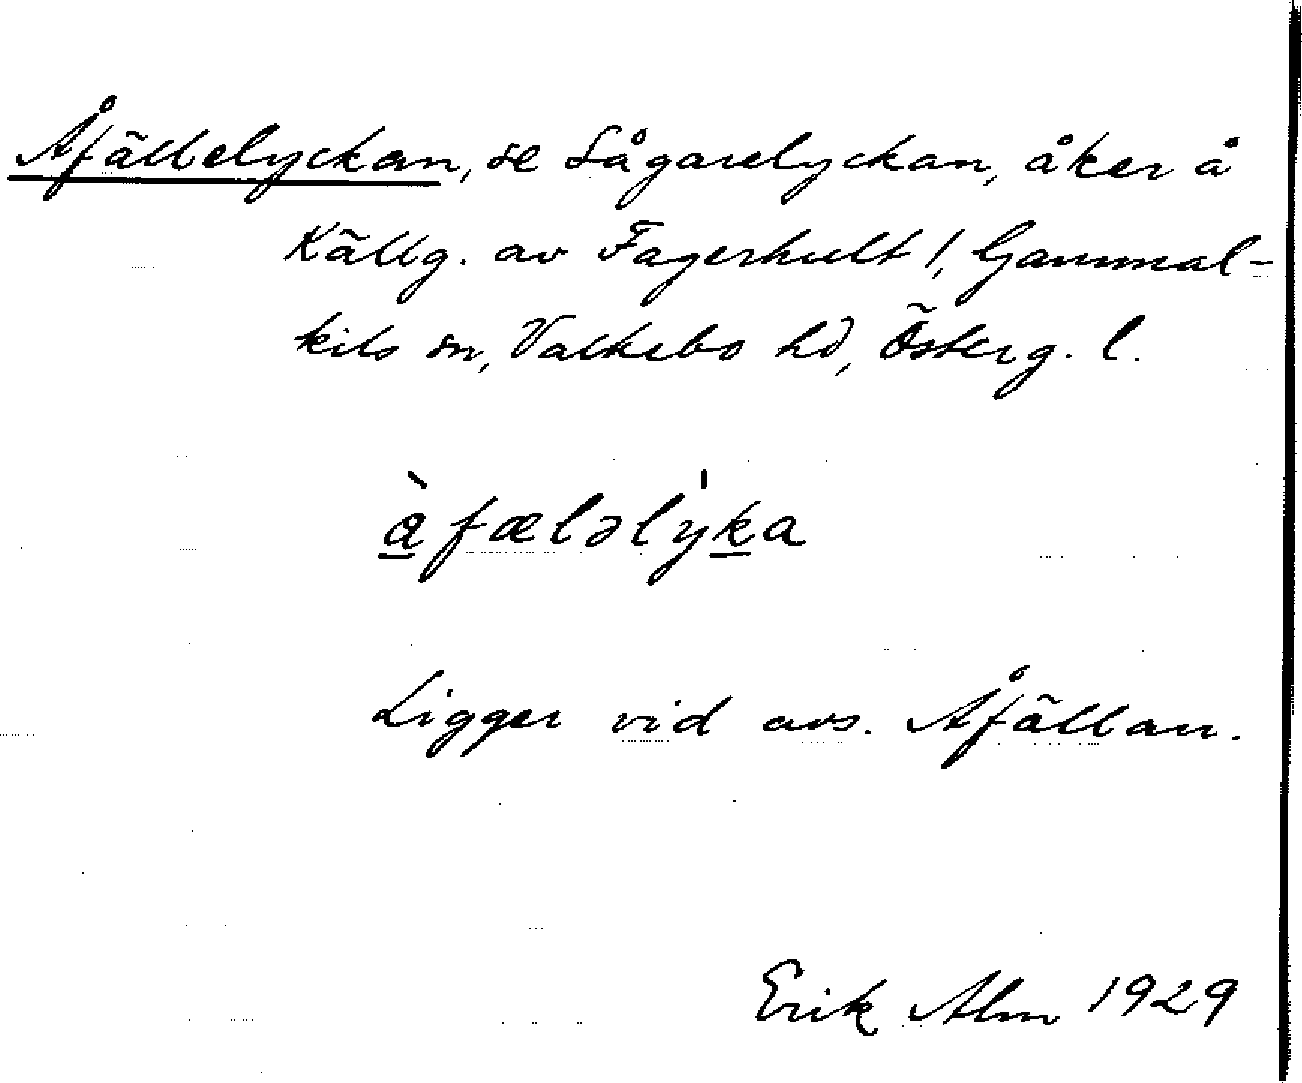 Åfällelyckan, se Sågarelyckan, åker å
Källg. av Fagerhult /, Gammal-
kils sn, Valkebo hd, Österg. l.
àfæləlýka
Ligger vid avs. Åfällan.
Erik Alm 1929